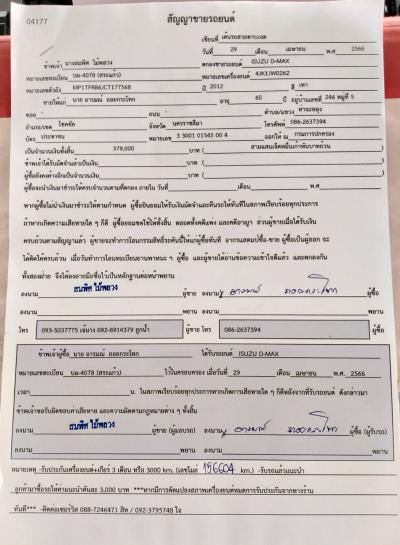 04177
สัญญาขายรถยนต์
เขียนที่ เต้นรถสวยตาบเจต
วันที่ 29 เดือน เมษายน พ.ศ. 2566
ข้าพเจ้า นางสมพิศ ไม้พลวง ตกลงขายรถยนต์ ISUZU D-MAX
หมายเลขทะเบียน บม-4078 (สระแก้ว) หมายเลขเครื่องยนต์ 4JK1JW0262
หมายเลขตัวถัง MP1TFR86/CT177568 ปี 2012 สี เทา
ขายให้แก่ นาย อารมณ์ ถอยกระโทก อายุ 60 ปี อยู่บ้านเลขที่ 246 หมู่ที่ 5
ซอย - ถนน - ตำบล/แขวง ท่าจะหลุง
อำเภอ/เขต โชคชัย จังหวัด นครราชสีมา โทรศัพท์ 086-2637394
บัตร ประชาชน หมายเลข 3 3001 01545 00 4 ออกให้ ณ กรมการปกครอง
เป็นจำนวนเงินทั้งสิ้น 379,000 บาท ( สามแสนเจ็ดหมื่นเก้าพันบาทถ้วน )
ข้าพเจ้าได้รับมัดจำแล้วเป็นเงิน บาท ( )
ผู้ซื้อยังคงค้างอีกเป็นจำนวนเงิน บาท ( )
ผู้ซื้อจะนำเงินมาชำระให้ครบจำนวนตามที่ตกลง ภายใน วันที่ เดือน พ.ศ.
หากผู้ซื้อไม่นำเงินมาชำระให้ตามกำหนด ผู้ซื้อยินยอมให้ริบเงินมัดจำและคืนรถให้ทันทีในสภาพเรียบร้อยทุกประการ
ถ้าหากเกิดความเสียหายใด ๆ ก็ดี ผู้ซื้อยอมชดใช้ให้ทั้งสิ้น ตลอดทั้งคดีแพ่ง และคดีอาญา ส่วนผู้ขายเมื่อได้รับเงิน
ครบถ้วนตามสัญญาแล้ว ผู้ขายจะทำการโอนกรรมสิทธิ์รถคันนี้ให้แก่ผู้ซื้อทันที อากรแสตมป์ซื้อ-ขาย ผู้ซื้อเป็นผู้ออก จะ
ได้คิดให้ครบถ้วน เมื่อวันทำการโอนทะเบียนยานพาหนะ ฯ ผู้ซื้อ และผู้ขายได้อ่านข้อความเข้าใจดีแล้ว และตกลงกัน
ทั้งสองฝ่าย จึงได้ลงลายมือชื่อไว้เป็นหลักฐานต่อหน้าพยาน
ลงนาม สมพิศ ไม้พลวง ผู้ขาย ลงนาม อารมณ์ ถอยกระโทก ผู้ซื้อ
ลงนาม พยาน ลงนาม พยาน
โทร 093-5037775 เจ๊นาง 092-8914379 ลูกน้ำ ผู้ขาย โทร 086-2637394 ผู้ซื้อ
ข้าพเจ้าผู้ซื้อ นาย อารมณ์ ถอยกระโทก ได้รับรถยนต์ ISUZU D-MAX
หมายเลขทะเบียน บม-4078 (สระแก้ว) ไว้ในครอบครอง เมื่อวันที่ 29 เดือน เมษายน พ.ศ. 2566
เวลา น. ในสภาพเรียบร้อยทุกประการหากเกิดการเสียหายใด ๆ ก็ดีหลังจากที่รับรถยนต์ ดังกล่าวมา
ข้าพเจ้าขอรับผิดชอบค่าเสียหาย และความผิดตามกฎหมายต่าง ๆ ทั้งสิ้น
ลงนาม สมพิศ ไม้พลวง ผู้ขาย (ผู้มอบรถ) ลงนาม อารมณ์ ถอยกระโทก ผู้ซื้อ (ผู้รับรถ)
ลงนาม พยาน ลงนาม พยาน
หมายเหตุ -รับประกันเครื่องยนต์+เกียร์ 3 เดือน หรือ 3000 km. (เลขไมล์ 196604 km.) -รับรถแล้วแนะนำ
ลูกค้ามาซื้อรถให้ค่าแนะนำคันละ 3,000 บาท ***หากมีการดัดแปลงสภาพเครื่องยนต์หมดการรับประกันจากทางร้าน
ทันที*** -ติดต่อเซอร์วิส 088-7246471 สิท / 092-3795748 ใจ